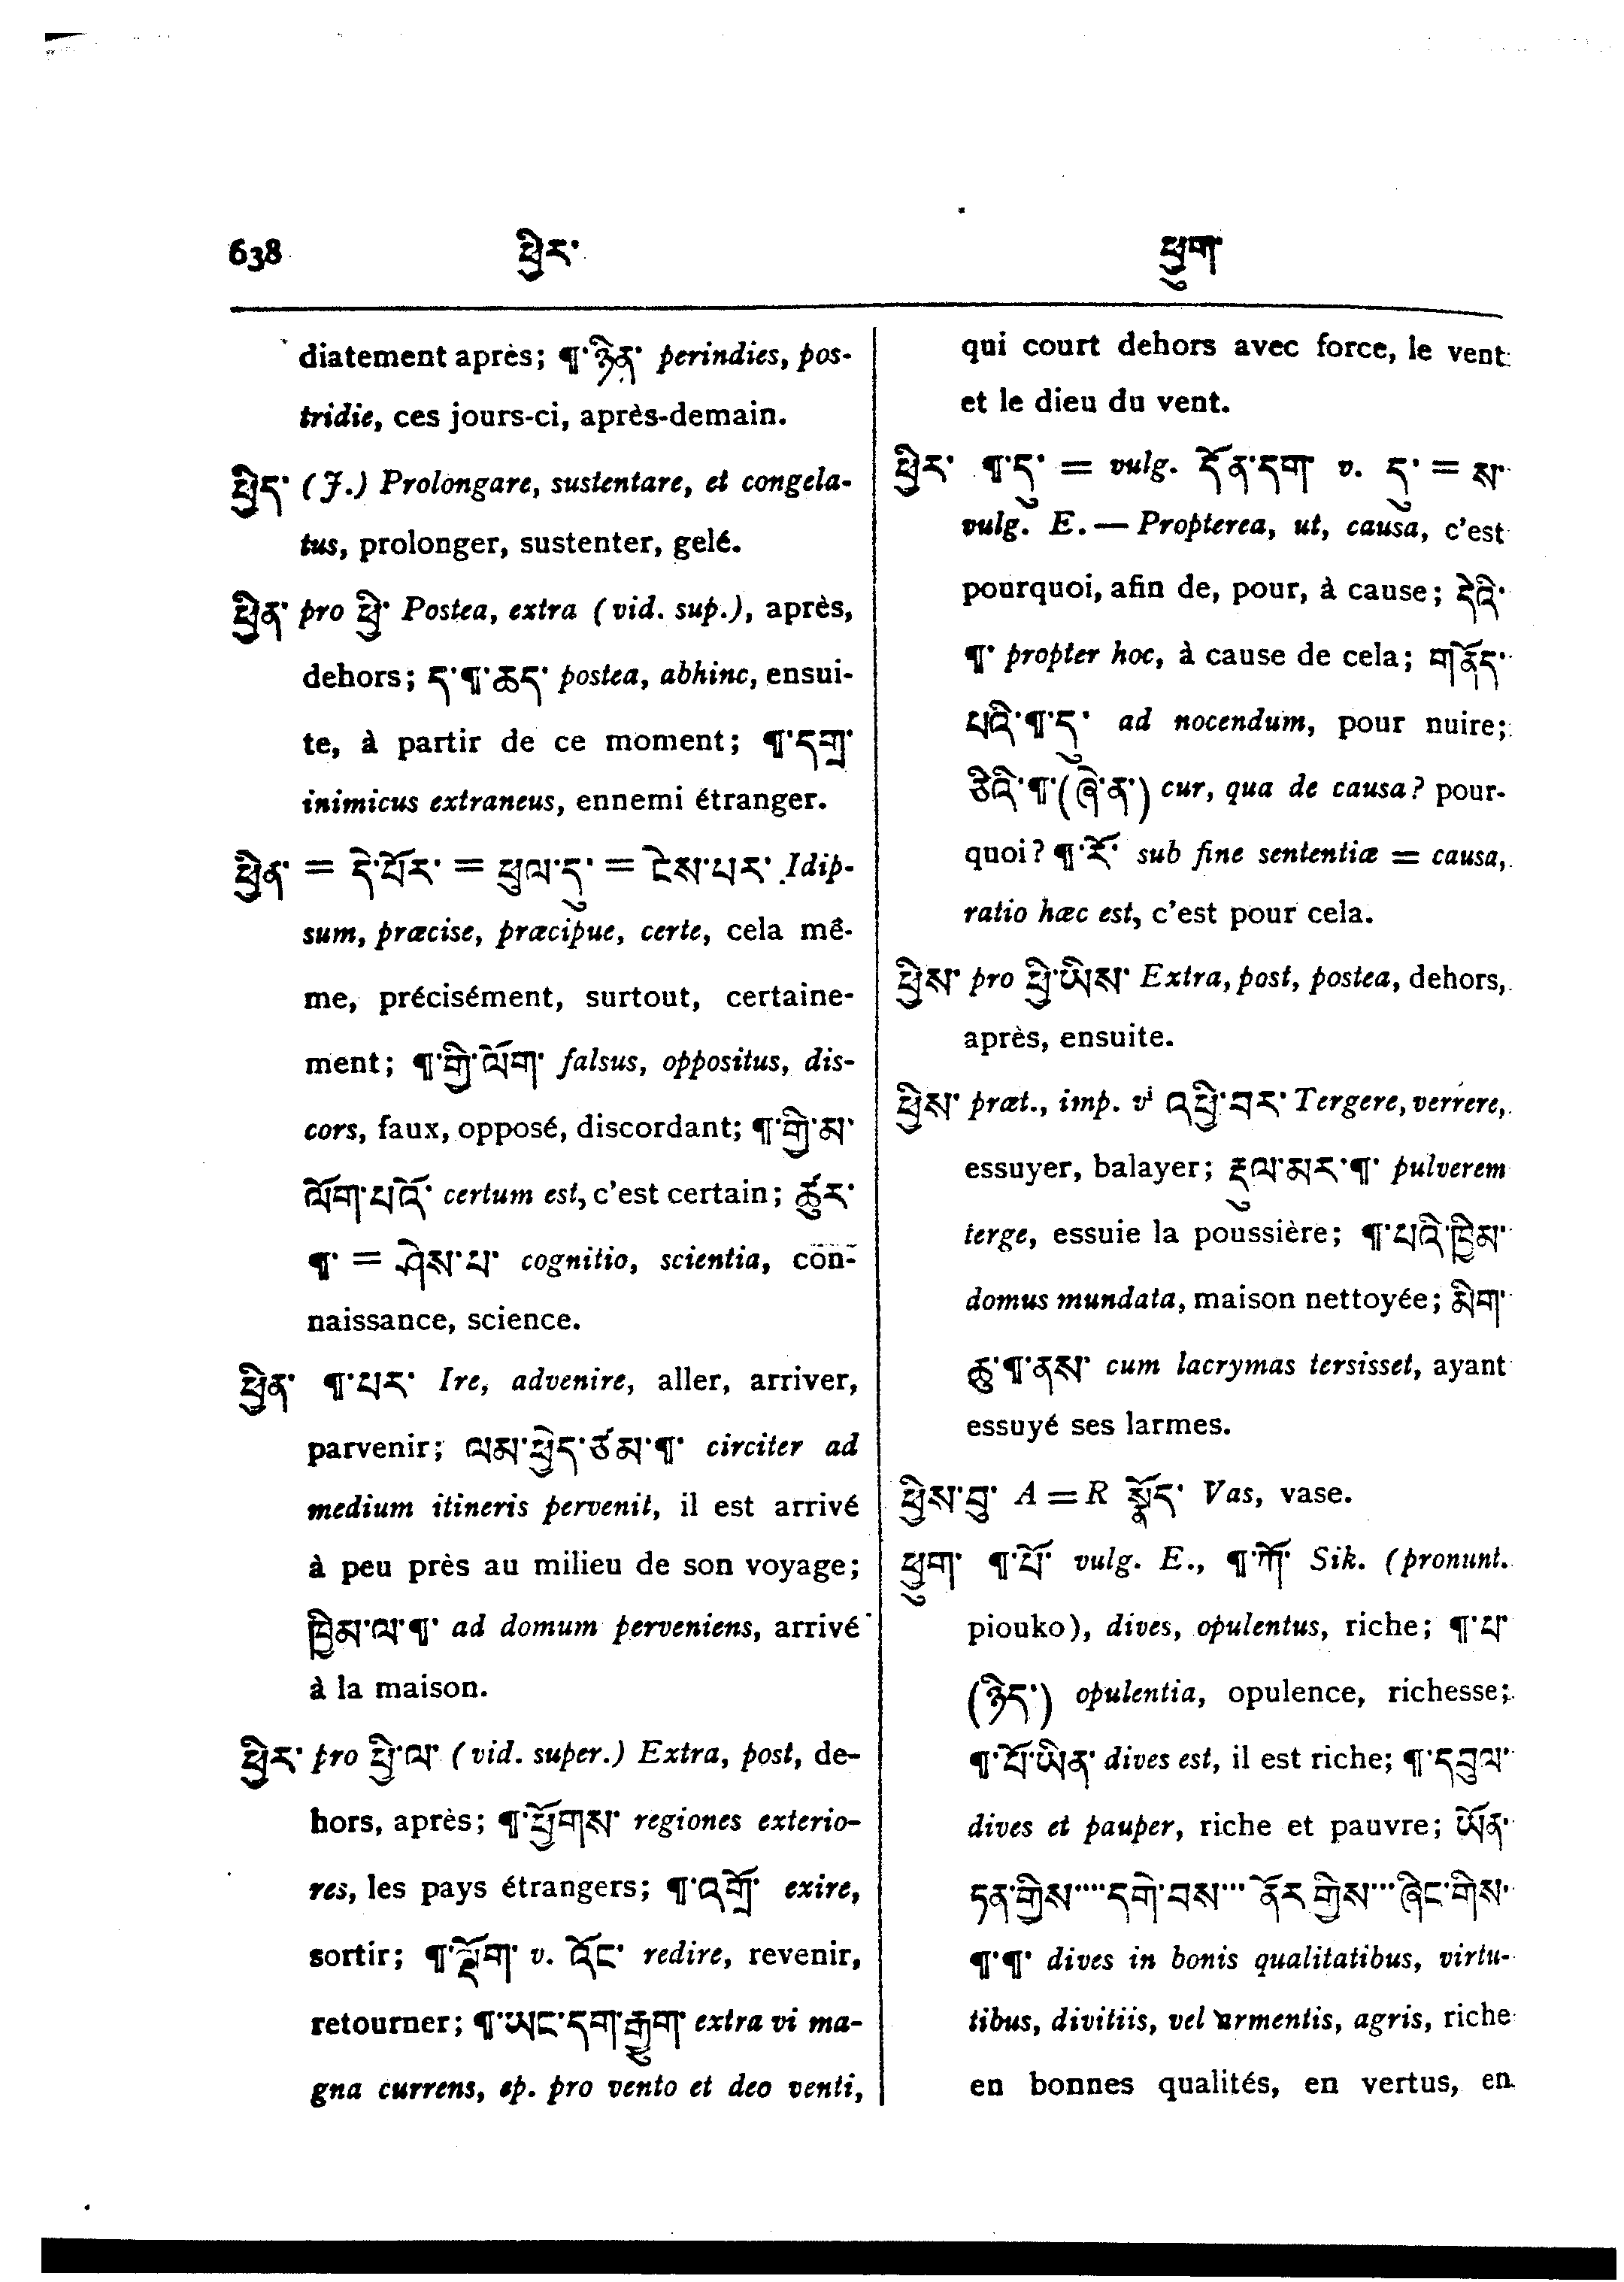 638 ཕྱིར་ ཕྱུག
diatement après; ¶་ཉིན་ perindies, pos-
tridie, ces jours-ci, après-demain.
ཕྱིད་ (J.) Prolongare, sustentare, et congela-
tus, prolonger, sustenter, gelé.
ཕྱིན་ pro ཕྱི་ Postea, extra (vid. sup.), après,
dehors; ད་¶་ཆད་ postea, abhinc, ensui-
te, à partir de ce moment; ¶་དགྲ་
inimicus extraneus, ennemi étranger.
ཕྱིན་ = དེ་པོར་ = ཕུལ་དུ་ = ངེས་པར་ Idip-
sum, præcise, præcipue, certe, cela mê-
me, précisément, surtout, certaine-
ment; ¶་ཀྱི་ལོག་ falsus, oppositus, dis-
cors, faux, opposé, discordant; ¶་ཀྱི་མ་
ལོག་པའོ་ certum est, c'est certain; ཚུར་
¶་ = ཤེས་པ་ cognitio, scientia, con-
naissance, science.
ཕྱིན་ ¶་པར་ Ire, advenire, aller, arriver,
parvenir; ལམ་ཕྱེད་ཙམ་¶་ circiter ad
medium itineris pervenit, il est arrivé
à peu près au milieu de son voyage;
ཁྱིམ་ལ་¶་ ad domum perveniens, arrivé
à la maison.
ཕྱིར་ pro ཕྱི་ལ་ (vid. super.) Extra, post, de-
hors, après; ¶་ཕྱོགས་ regiones exterio-
res, les pays étrangers; ¶་འགྲོ་ exire,
sortir; ¶་ལྡོག་ v. འོང་ redire, revenir,
retourner; ¶་ཡང་དག་རྒྱུག་ extra vi ma-
gna currens, ep. pro vento et deo venti,
qui court dehors avec force, le vent
et le dieu du vent.
ཕྱིར་ ¶་དུ་ = vulg. དོན་དག་ v. དུ་ = ས་
vulg. E. — Propterea, ut, causa, c'est
pourquoi, afin de, pour, à cause; དེའི་
¶་ propter hoc, à cause de cela; གནོད་
པའི་¶་དུ་ ad nocendum, pour nuire;
ཅིའི་¶་(ཞེ་ན་) cur, qua de causa? pour-
quoi? ¶་རོ་ sub fine sententiæ = causa,
ratio hæc est, c'est pour cela.
ཕྱིས་ pro ཕྱི་ཡིས་ Extra, post, postea, dehors,
après, ensuite.
ཕྱིས་ præt., imp. vi འཕྱི་བར་ Tergere, verrere,
essuyer, balayer; རྡུལ་མར་¶་ pulverem
terge, essuie la poussière; ¶་པའི་ཁྱིམ་
domus mundata, maison nettoyée; མིག་
ཆུ་¶་ནས་ cum lacrymas tersisset, ayant
essuyé ses larmes.
ཕྱིས་བུ་ A = R སྣོད་ Vas, vase.
ཕྱུག་ ¶་པོ་ vulg. E., ¶་ཀོ་ Sik. (pronunt.
piouko), dives, opulentus, riche; ¶་པ་
(ཉིད་) opulentia, opulence, richesse;
¶་པོ་ཡིན་ dives est, il est riche; ¶་དབུལ་
dives et pauper, riche et pauvre; ཡོན་
ཏན་གྱིས་···· དགེ་བས་··· ནོར་གྱིས་··· ཞིང་གིས་
¶་¶་ dives in bonis qualitatibus, virtu-
tibus, divitiis, vel armentis, agris, riche
en bonnes qualités, en vertus, en